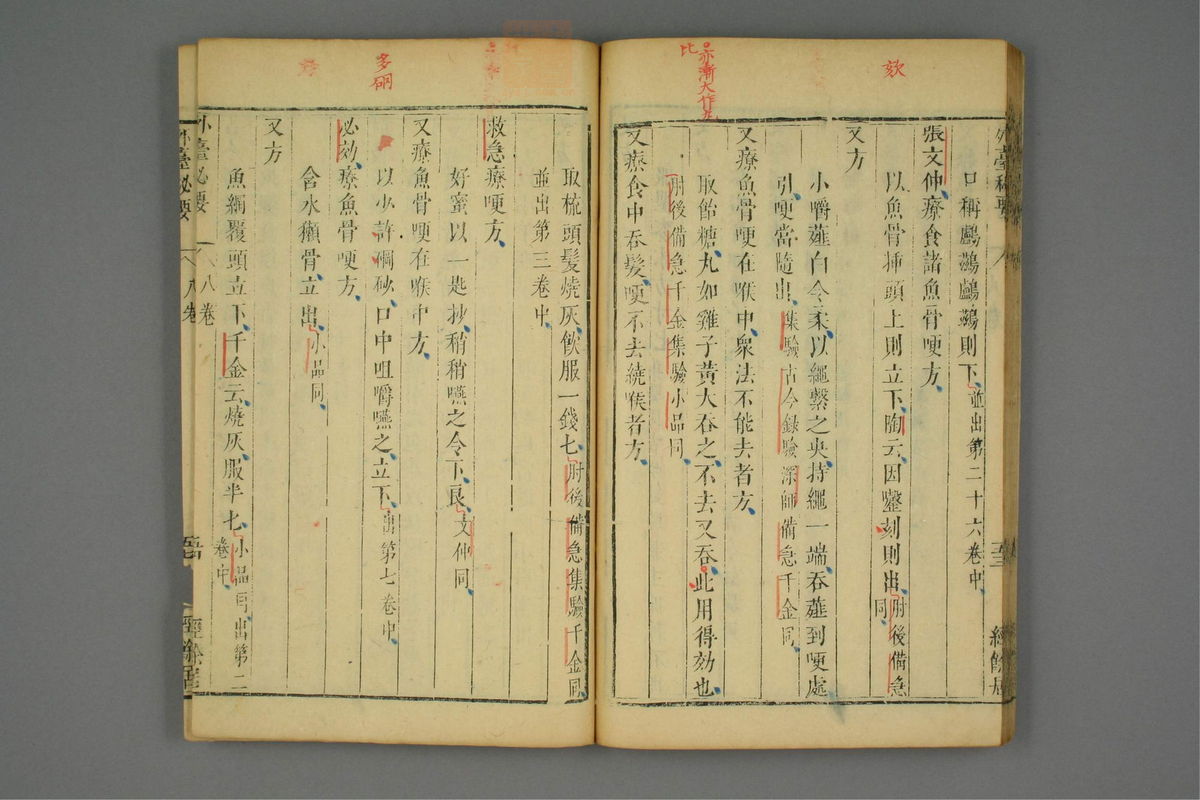 欬
亦漸大作尤
比
外臺秘要
經餘居
口稱鸕鷀鸕鷀則下並出第二十六卷中
張文仲療食諸魚骨哽方
以魚骨插頭上則立下陶云因謦刻則出肘後備急
同
又方
小嚼薤白令柔以繩繫之央持繩一端吞薤到哽處
引哽當隨出集驗古今錄驗深師備急千金同
又療魚骨哽在喉中衆法不能去者方
取飴糖丸如雞子黃大吞之不去又吞此用得効也
肘後備急千金集驗小品同
又療食中吞髮哽不去繞喉者方
多硇
取梳頭髮燒灰飲服一錢七肘後備急集驗千金同
並出第三卷中
救急療哽方
好蜜以一匙抄稍稍嚥之令下良文仲同
又療魚骨哽在喉中方
以少許硇砂口中咀嚼嚥之立下出第七卷中
必効療魚骨哽方
含水獺骨立出小品同
又方
魚綱覆頭立下千金云燒灰服半七小品同出第二
卷中
外臺秘要
八卷
外臺秘要
八卷
經餘居